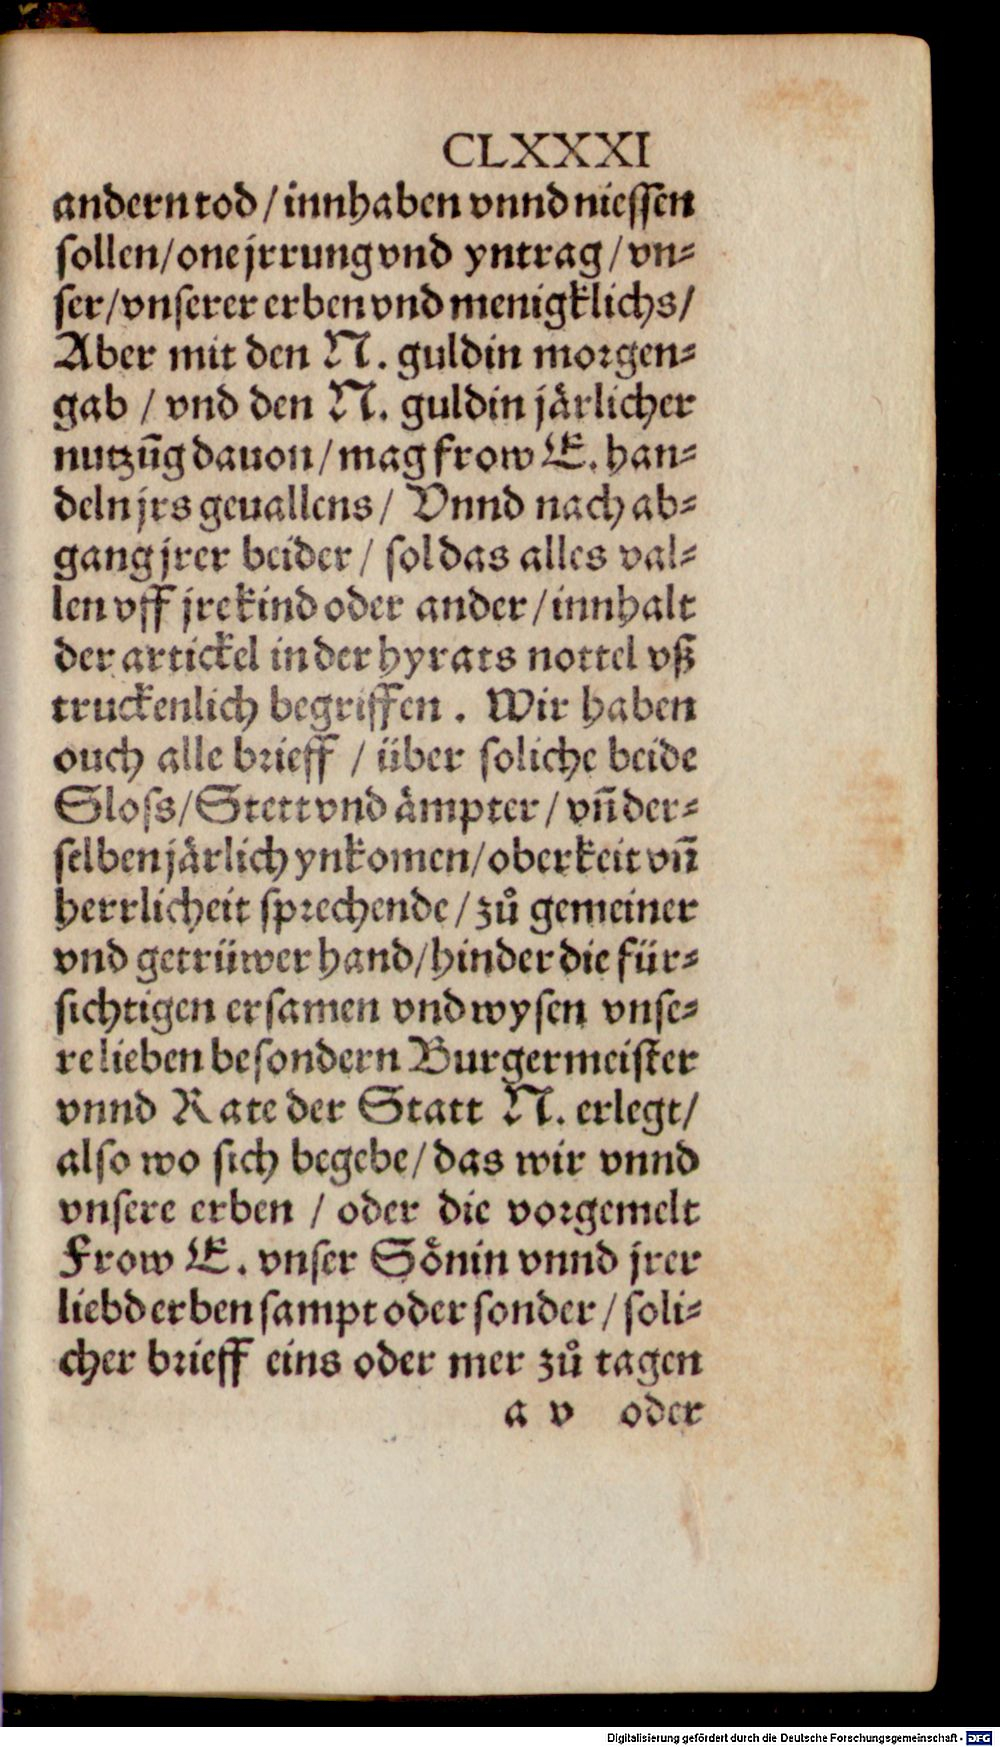 CLXXXI
andern tod / innhaben vnnd niessen
sollen / one jrrung vnd yntrag / vn⸗
ser / vnserer erben vnd menigklichs /
Aber mit den N. guldin morgen⸗
gab / vnd den N. guldin järlicher
nutzūg dauon / mag frow E. han⸗
deln jrs geuallens / Vnnd nach ab⸗
gang jrer beider / sol das alles val⸗
len vff jre kind oder ander / innhalt
der artickel in der hyrats nottel vß
truckenlich begriffen . Wir haben
ouch alle brieff / über soliche beide
Sloss / Stett vnd ämpter / vn̄ der⸗
selben järlich ynkomen / oberkeit vn̄
herrlicheit sprechende / zů gemeiner
vnd getrüwer hand / hinder die für⸗
sichtigen ersamen vnd wysen vnse⸗
re lieben besondern Burgermeister
vnnd Rate der Statt N. erlegt /
also wo sich begebe / das wir vnnd
vnsere erben / oder die vorgemelt
Frow E. vnser Sönin vnnd jrer
liebd erben sampt oder sonder / soli⸗
cher brieff eins oder mer zů tagen
a v oder
Digitalisierung gefördert durch die Deutsche Forschungsgemeinschaft - DFG